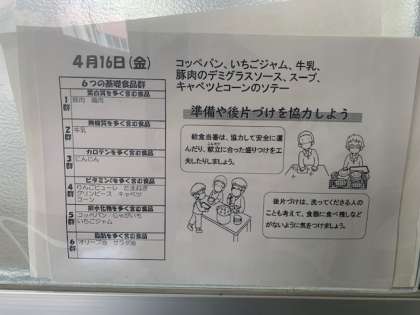 4月16日(金)
6つの基礎食品群
蛋白質を多く含む食品
1群
豚肉 鶏肉
無機質を多く含む食品
2群
牛乳
カロテンを多く含む食品
3群
にんじん
ビタミンCを多く含む食品
4群
りんごピューレ たまねぎ
グリンピース キャベツ
コーン
炭水化物を多く含む食品
5群
コッペパン じゃがいも
いちごジャム
脂肪を多く含む食品
6群
オリーブ油 サラダ油
コッペパン、いちごジャム、牛乳、
豚肉のデミグラスソース、スープ、
キャベツとコーンのソテー
準備や後片づけを協力しよう
給食当番は、協力して安全に運
んだり、献立に合った盛りつけを工
夫したりしましょう。
後片づけは、洗ってくださる人の
ことも考えて、食器に食べ残しなど
がないように気をつけましょう。